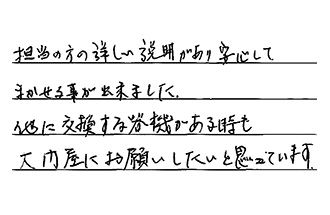 担当の方の詳しい説明があり安心して
まかせる事が出来ました。
他に交換する器機がある時も
大内屋にお願いしたいと思っています。